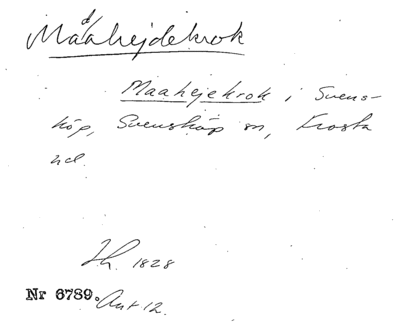 Maahejdekrok
Maahejekrok i Svens-
köp, Svensköp sn, Frosta
hd.
1828
Nr 6789. Ant 12.